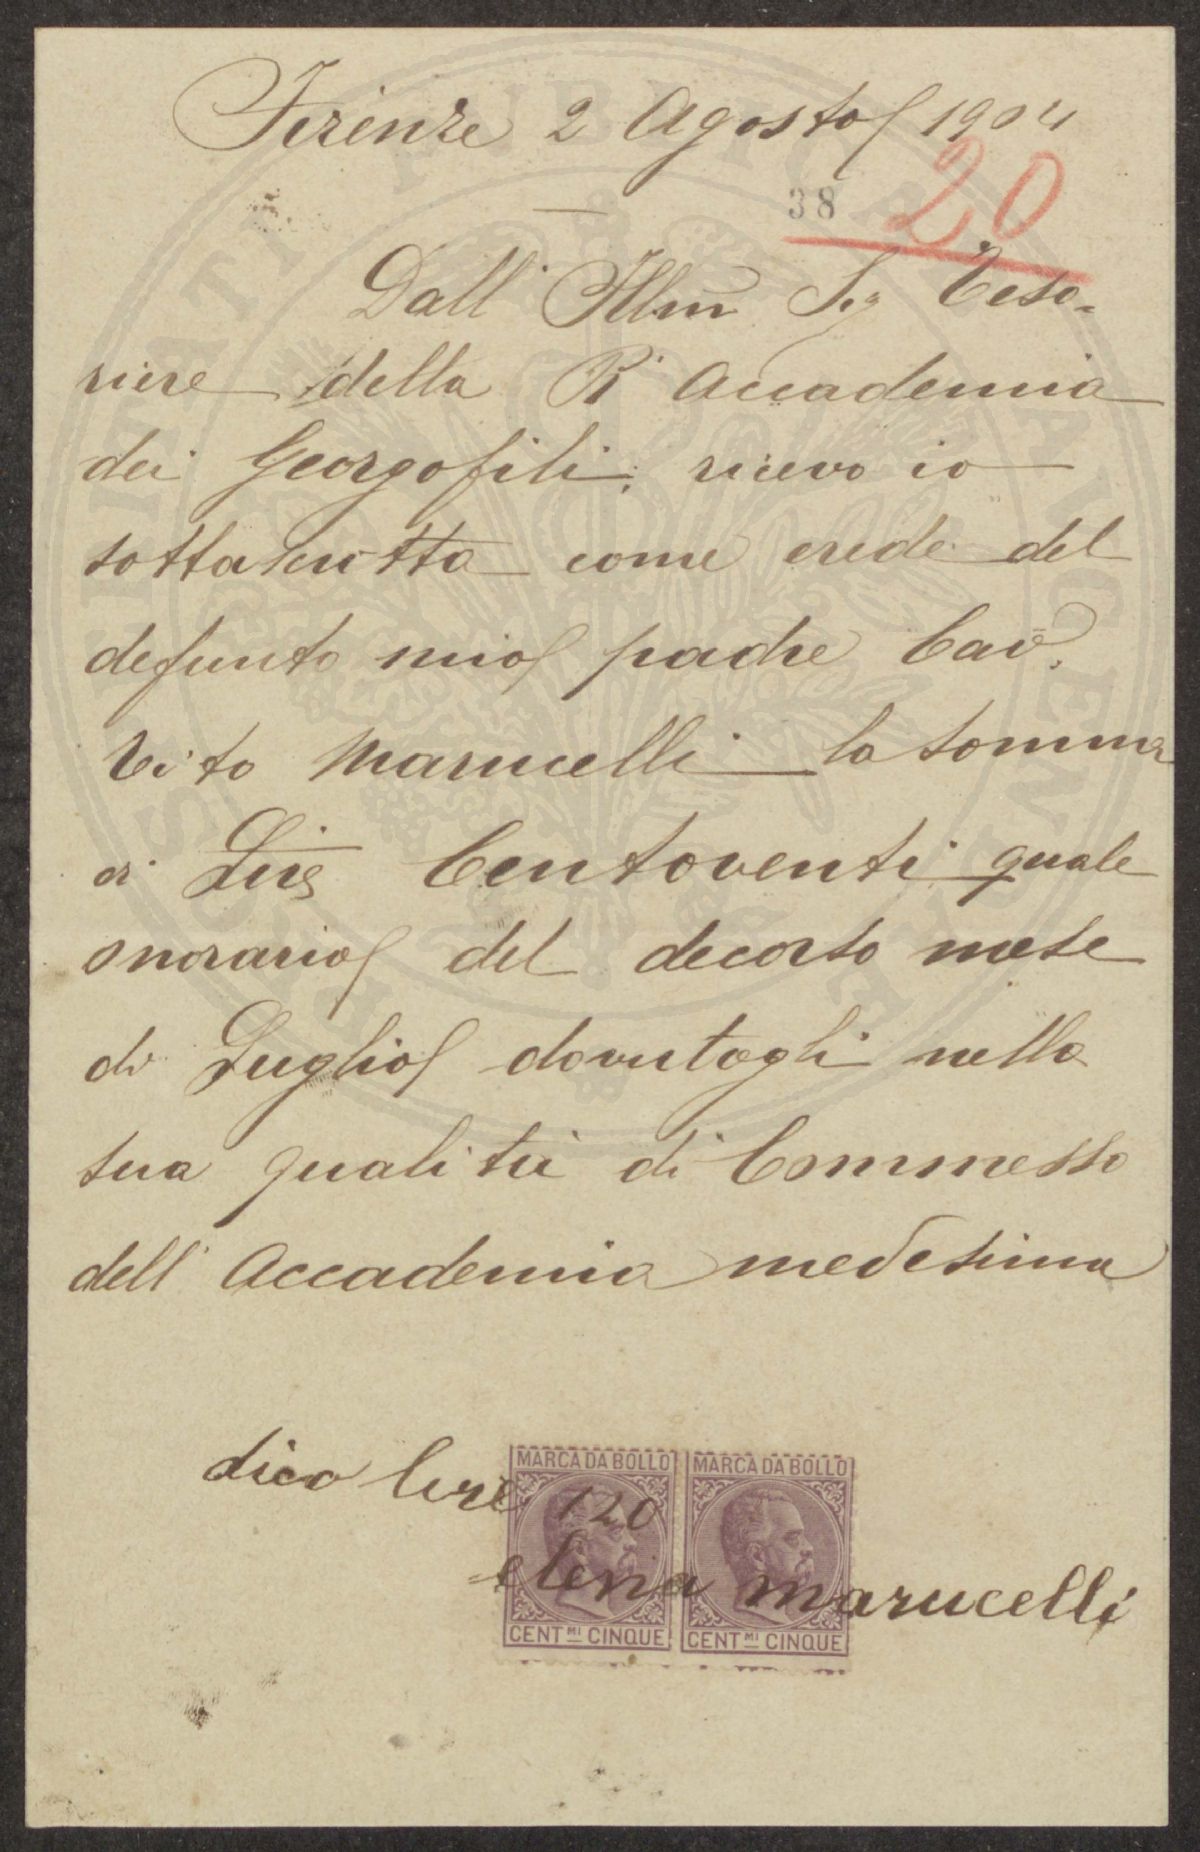 Firenze 2 Agosto 1904
38 20
Dall' Illm Sig Teso-
riere della R Accademia
dei Georgofili, ricevo io
sottascritta come erede del
defunto mio padre Cav.
Vito Marucelli la somma
di Lire Centoventi quale
onorario del decorso mese
di Luglio dovutogli nella
sua qualità di Commesso
dell' Accademia medesima
dico lire 120
elena marucelli
MARCA DA BOLLO MARCA DA BOLLO
CENT.MI CINQUE CENT.MI CINQUE